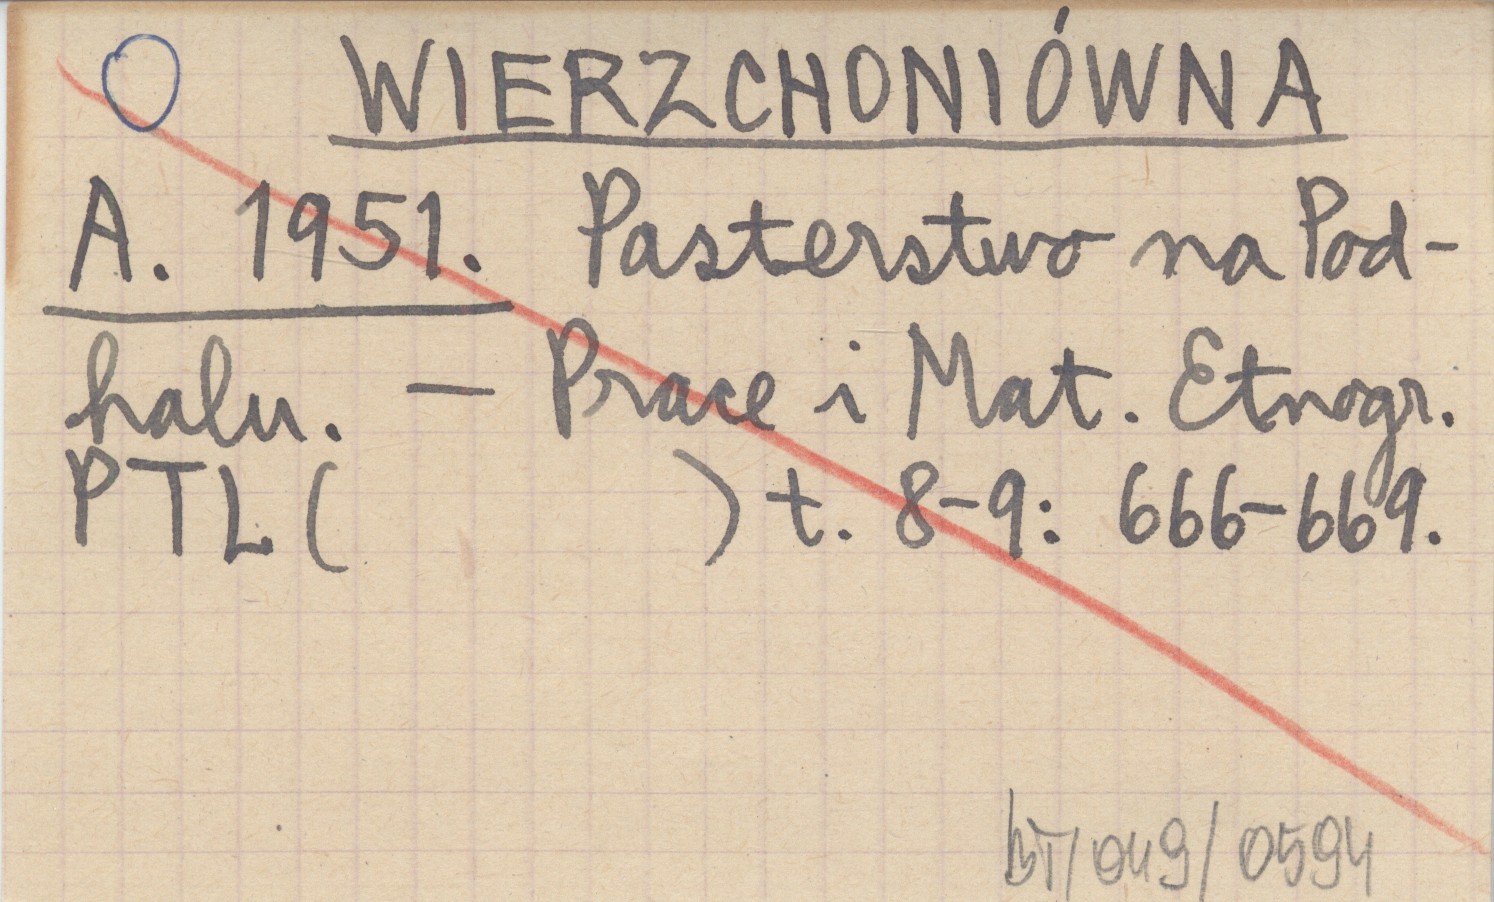 WIERZCHONIÓWNA
A. 1951. Pasterstwo na Pod-
halu. — Prace i Mat. Etnogr.
PTL ( ) t. 8-9: 666-669.
BT/049/0594